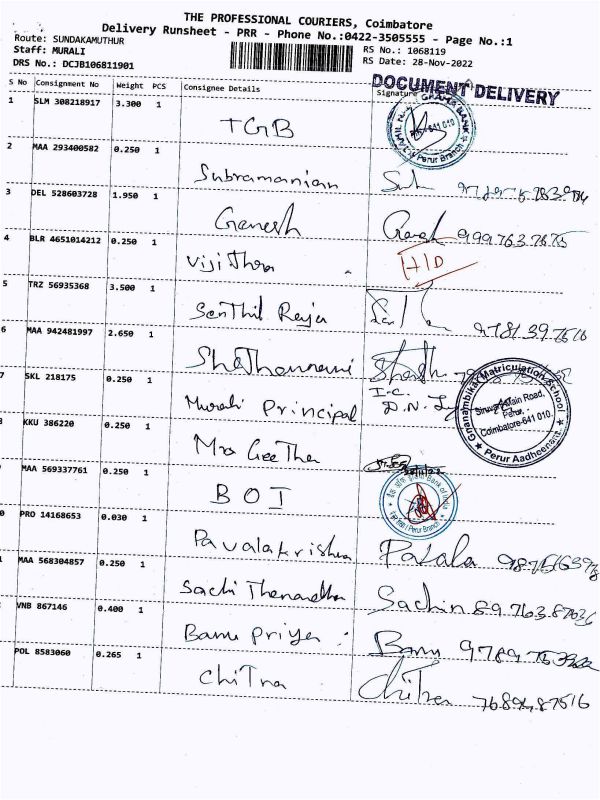 THE PROFESSIONAL COURIERS, Coimbatore
Delivery Runsheet - PRR - Phone No.:0422-3505555 - Page No.:1
Route: SUNDAKAMUTHUR
RS No.: 1068119
Staff: MURALI
RS Date: 28-Nov-2022
DRS No.: DCJB106811901
DOCUMENT DELIVERY
S No Consignment No Weight PCS Consignee Details Signature
1 SLM 308218917 3.300 1
TGB
641 010
Perur Branch
2 MAA 293400582 0.250 1
Subramanian
3 DEL 528603728 1.950 1
Ganesh Ganesh
4 BLR 4651014212 0.250 1
Vijithra H/D
5 TRZ 56935368 3.500 1
Senthil Raja
6 MAA 942481997 2.650 1
7 SKL 218175 0.250 1
Murali Principal
Gnanambikai Matriculation School
Siruvani Main Road,
Perur,
Coimbatore-641 010.
Perur Aadheenam
KKU 386220 0.250 1
Mrs Geetha
MAA 569337761 0.250 1
BOI
Bank of India
Perur Branch
0 PRO 14168653 0.030 1
Pavalakrishna Pavala
MAA 568304857 0.250 1
Sachin
VNB 867146 0.400 1
Banu Priya : Banu
POL 8583060 0.265 1
Chitra Chitra